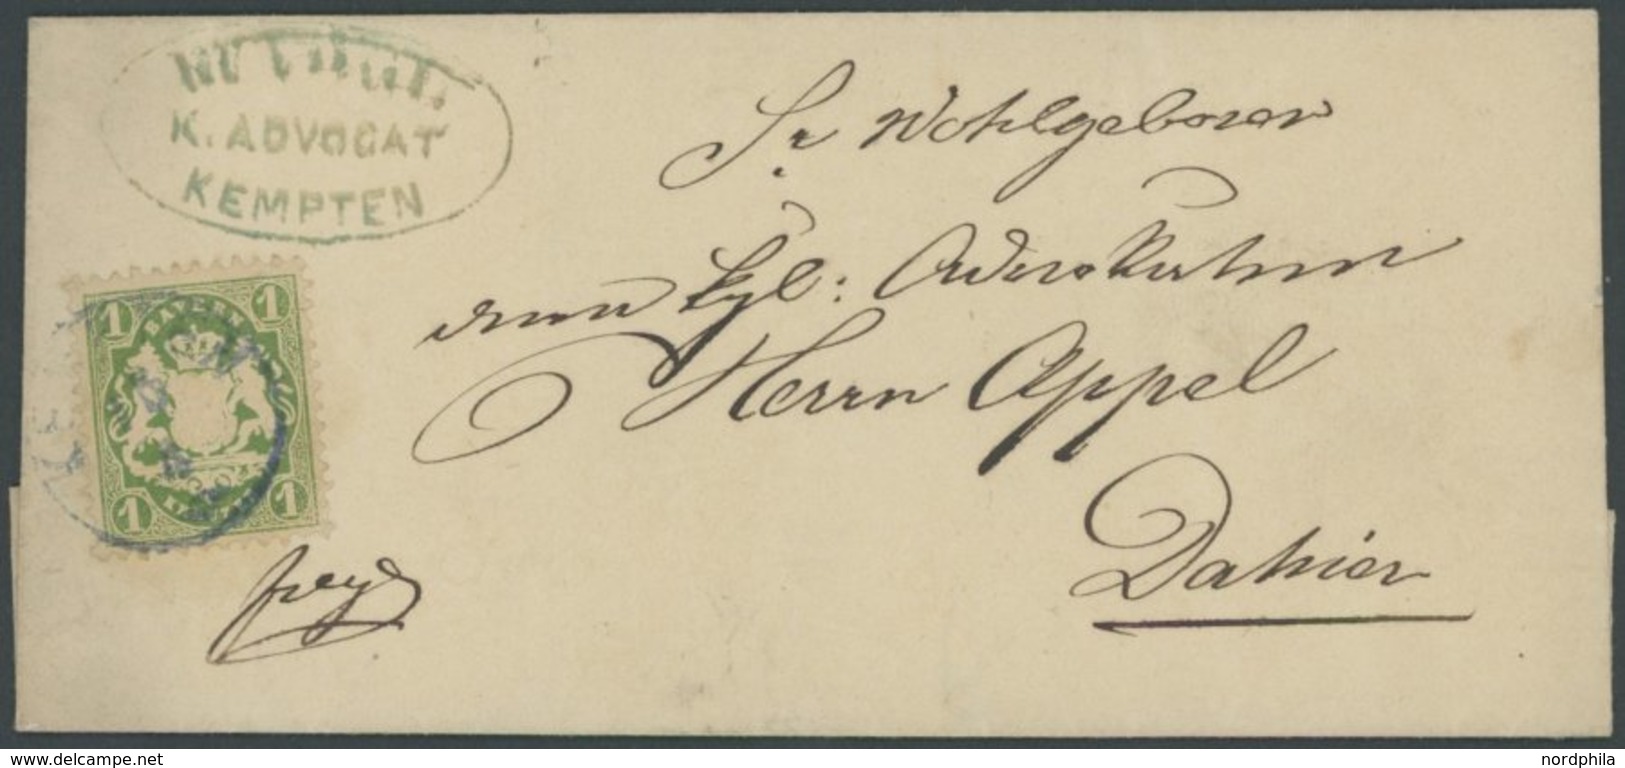 K. ADVOCAT
KEMPTEN
1 BAYERN 1
1 1
Sr Wohlgeboren
dem kgl: Advokaten
Herrn Appel
Dahier
www.delcampe.net
nordphila